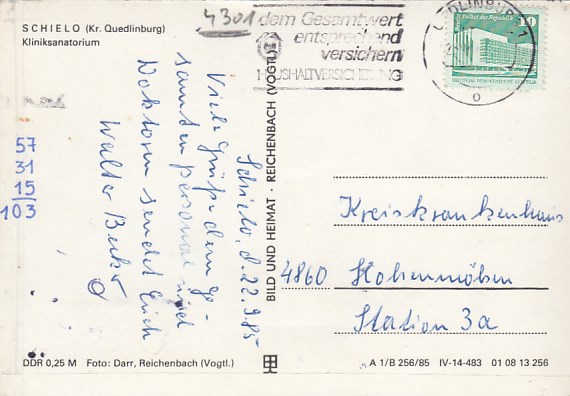 SCHIELO (Kr. Quedlinburg)
Kliniksanatorium
4301
dem Gesamtwert
entsprechend
versichern
HAUSHALTVERSICHERUNG
QUEDLINBURG 1
Palast der Republik
10
DEUTSCHE DEMOKRATISCHE REPUBLIK
57
31
15
103
Schielo, d. 22.9.85
Viele Grüße dem ge-
samten Personal und
Doktoren sendet Euch
Walter
BILD UND HEIMAT · REICHENBACH (VOGTL)
Kreiskrankenhaus
4860 Hohenmölsen
Station 3a
DDR 0,25 M Foto: Darr, Reichenbach (Vogtl.)
A 1/B 256/85 IV-14-483 01 08 13 256